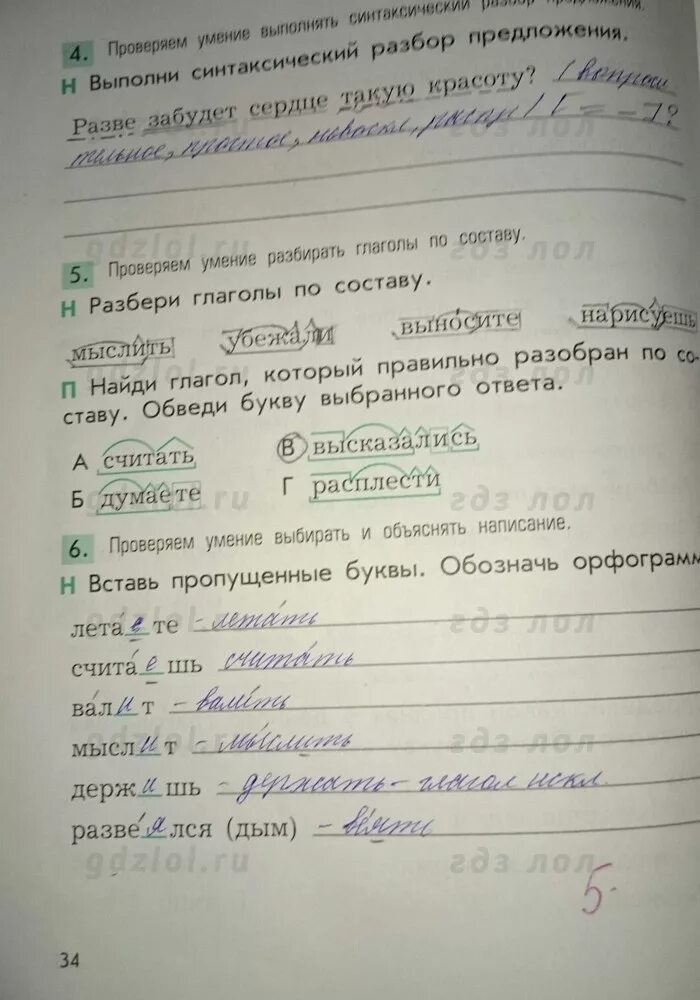 4. Проверяем умение выполнять синтаксический разбор предложения.
Н Выполни синтаксический разбор предложения.
Разве забудет сердце такую красоту? (вопроси
тельное, простое, невоскл., распр.) [= – ]?
gdzlol.ru гдз лол
5. Проверяем умение разбирать глаголы по составу.
Н Разбери глаголы по составу.
мыслить убежали выносите нарисуешь
П Найди глагол, который правильно разобран по со-
ставу. Обведи букву выбранного ответа.
А считать В высказались
Б думаете Г расплести
gdzlol.ru гдз лол
6. Проверяем умение выбирать и объяснять написание.
Н Вставь пропущенные буквы. Обозначь орфограмм
лета́ е те – лета́ть
счита́ е шь счита́ть
ва́л и т – вали́ть
мысл и т – мы́слить
держ и шь – держать – глагол искл.
разве́ я лся (дым) – ве́ять
gdzlol.ru гдз лол
5.
34